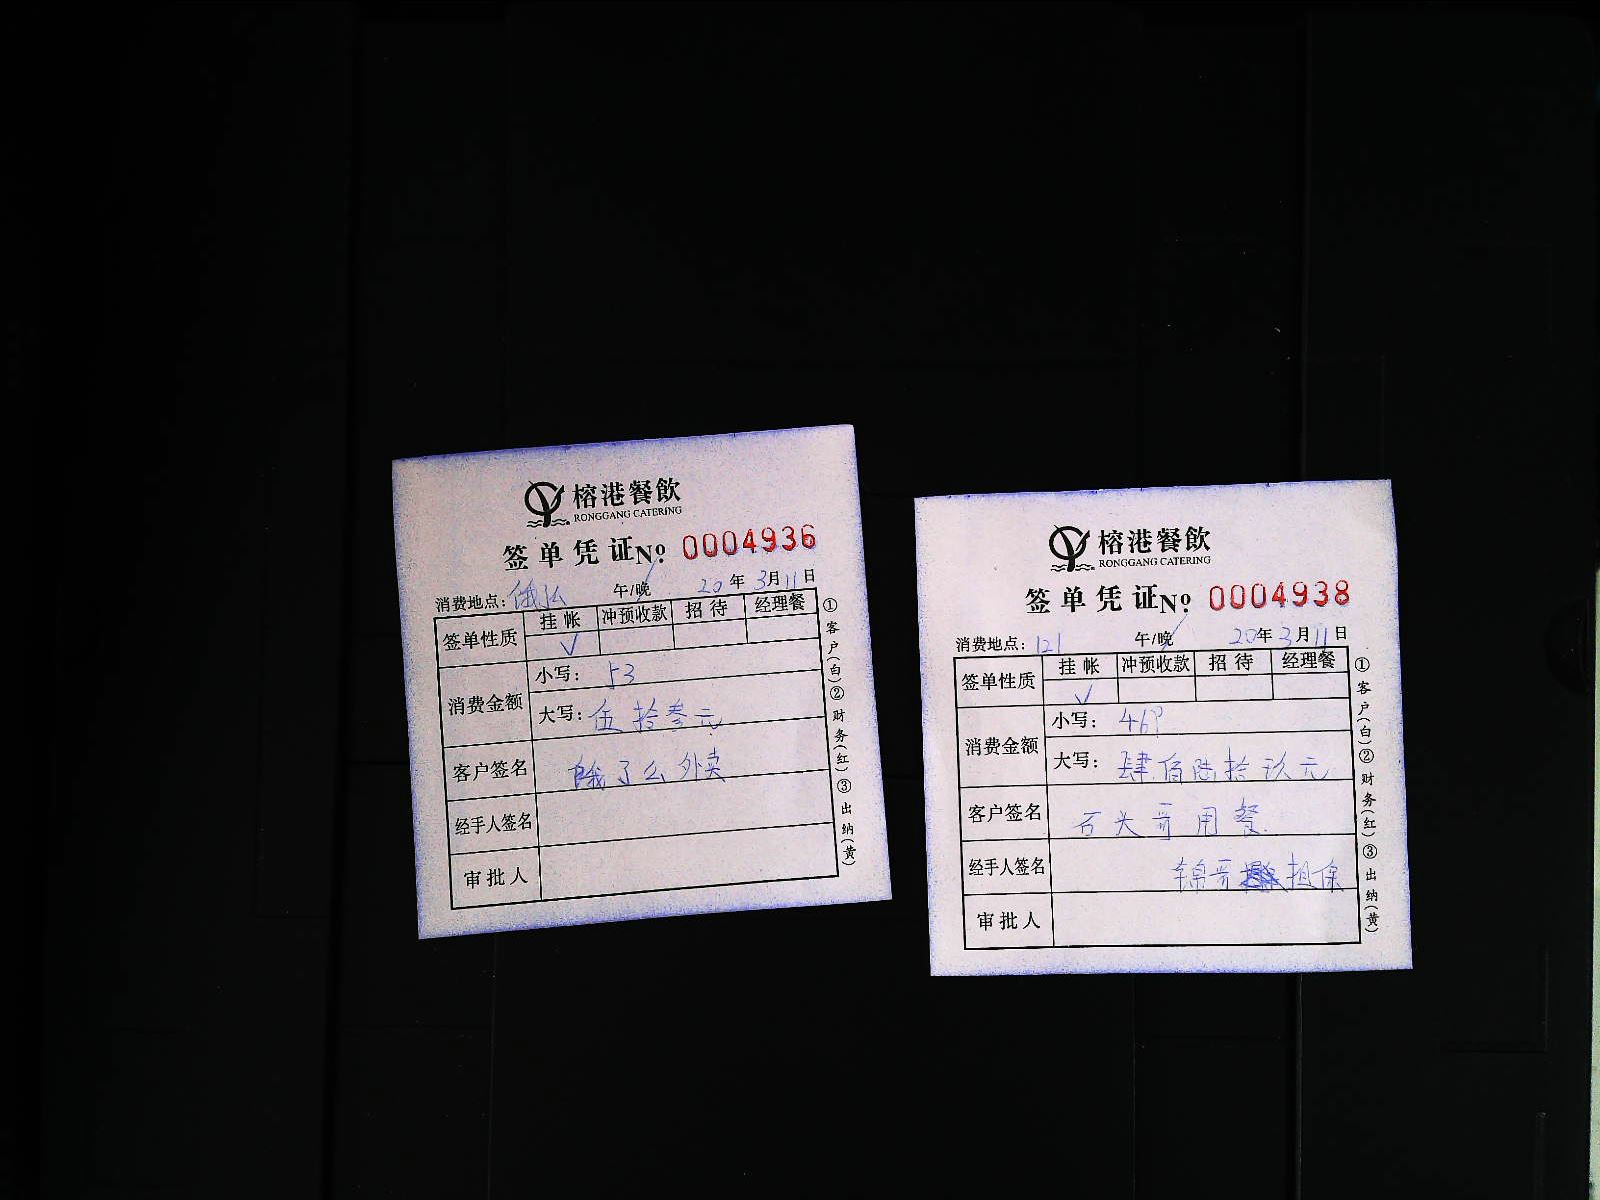 榕港餐飲
RONGGANG CATERING
签单凭证No. 0004936
消费地点: 午/晚 20年3月11日
签单性质 挂帐 冲预收款 招待 经理餐
√
消费金额 小写: 53
大写: 伍拾叁元
客户签名 饿了么外卖
经手人签名
审批人
①客户(白)②财务(红)③出纳(黄)
榕港餐飲
RONGGANG CATERING
签单凭证No. 0004938
消费地点: 121 午/晚 20年3月11日
签单性质 挂帐 冲预收款 招待 经理餐
√
消费金额 小写: 469
大写: 肆佰陆拾玖元
客户签名 石头哥用餐
经手人签名 锦哥担保
审批人
①客户(白)②财务(红)③出纳(黄)